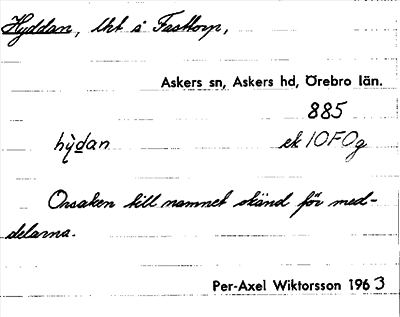 Hyddan, lht å Fasttorp,
Askers sn, Askers hd, Örebro län.
885
hỳdan ek 10F0g
Orsaken till namnet okänd för med-
delarna.
Per-Axel Wiktorsson 1963